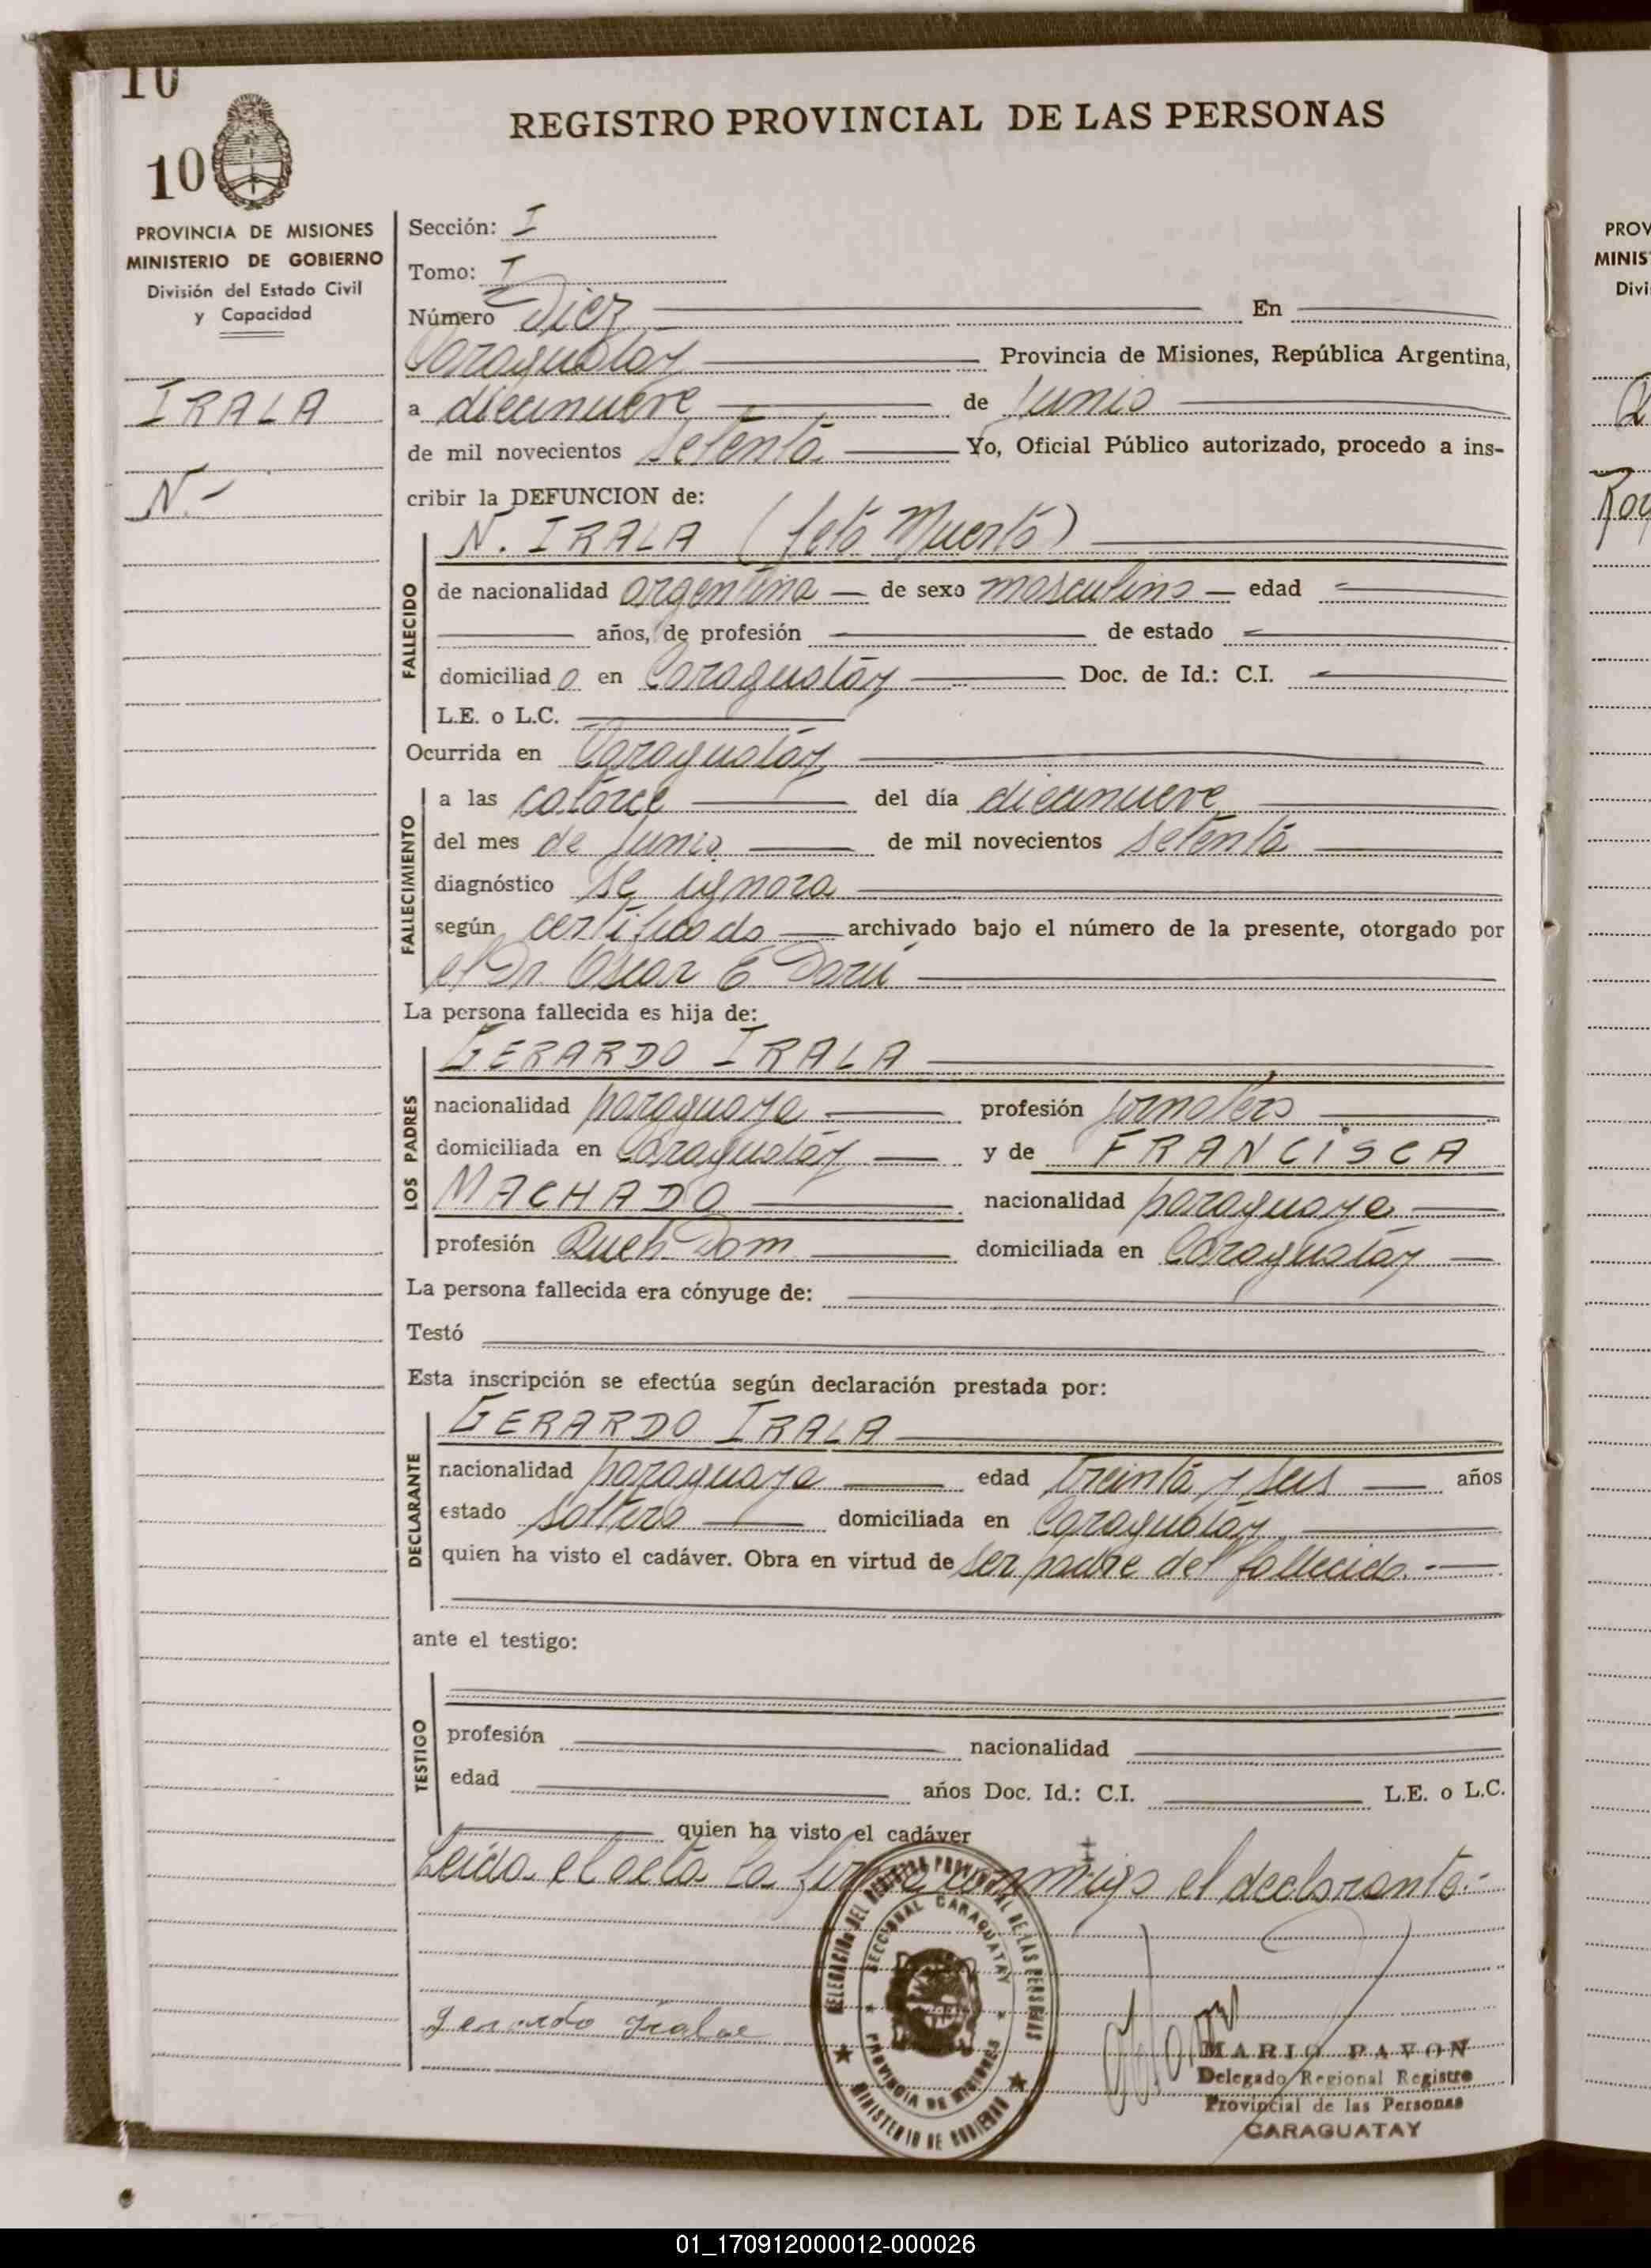 10
10
REGISTRO PROVINCIAL DE LAS PERSONAS
PROVINCIA DE MISIONES
MINISTERIO DE GOBIERNO
División del Estado Civil
y Capacidad
IRALA
N.-
Sección: I
Tomo: I
Número Diez En
Caraguatay Provincia de Misiones, República Argentina,
a diecinueve de Junio
de mil novecientos setenta Yo, Oficial Público autorizado, procedo a ins-
cribir la DEFUNCION de:
N. IRALA (feto Muerto)
FALLECIDO
de nacionalidad argentina de sexo masculino edad
años, de profesión de estado
domiciliado en Caraguatáy Doc. de Id.: C.I.
L.E. o L.C.
Ocurrida en Caraguatáy
FALLECIMIENTO
a las catorce del día diecinueve
del mes de Junio de mil novecientos setenta
diagnóstico se ignora
según certificado archivado bajo el número de la presente, otorgado por
el Dr. Oscar E. Darú
La persona fallecida es hija de:
LOS PADRES
GERARDO IRALA
nacionalidad paraguaya profesión jornalero
domiciliada en Caraguatáy y de FRANCISCA
MACHADO nacionalidad paraguaya
profesión Queh. Dom domiciliada en Caraguatay
La persona fallecida era cónyuge de:
Testó
Esta inscripción se efectúa según declaración prestada por:
DECLARANTE
GERARDO IRALA
nacionalidad paraguaya edad treinta y seis años
estado soltero domiciliada en Caraguatáy
quien ha visto el cadáver. Obra en virtud de ser padre del fallecido.-
ante el testigo:
TESTIGO
profesión nacionalidad
edad años Doc. Id.: C.I. L.E. o L.C.
quien ha visto el cadáver
Leida el acta la firma conmigo el declarante.-
DELEGACION DEL REGISTRO PROVINCIAL DE LAS PERSONAS
SECCIONAL CARAGUATAY
PROVINCIA DE MISIONES
MINISTERIO DE GOBIERNO
Gerardo Irala
MARIO PAVON
Delegado Regional Registro
Provincial de las Personas
CARAGUATAY
PROV
MINIS
Divi
01_170912000012-000026